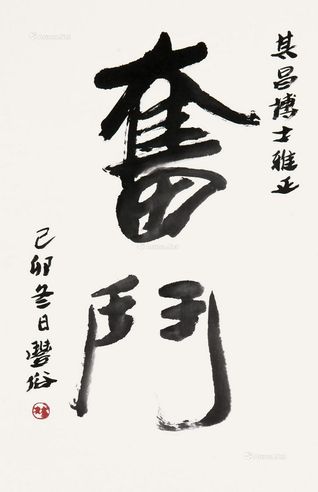 其昌博士雅正
奮鬥
己卯冬日豐俗